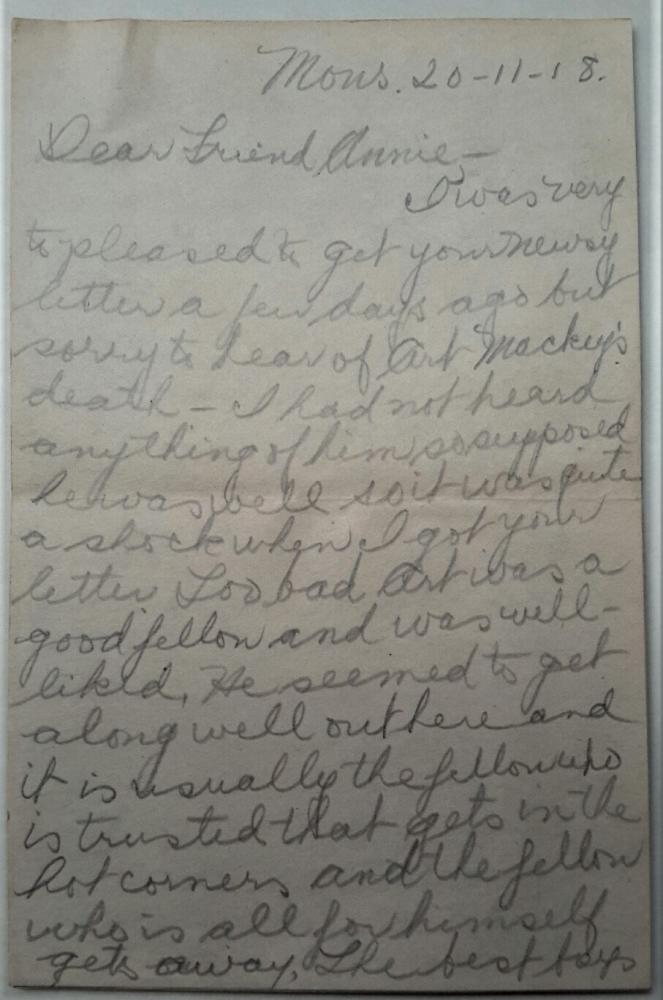 Mons. 20-11-18.
Dear Friend Annie-
I was very
to pleased to get your newsy
letter a few days ago but
sorry to hear of Art Mackey's
death - I had not heard
anything of him so supposed
he was well so it was quite
a shock when I got your
letter Too bad Art was a
good fellow and was well-
likd, He seemed to get
along well out here and
it is usually the fellow who
is trusted that gets in the
hot corners and the fellow
who is all for himself
gets away, The best boys